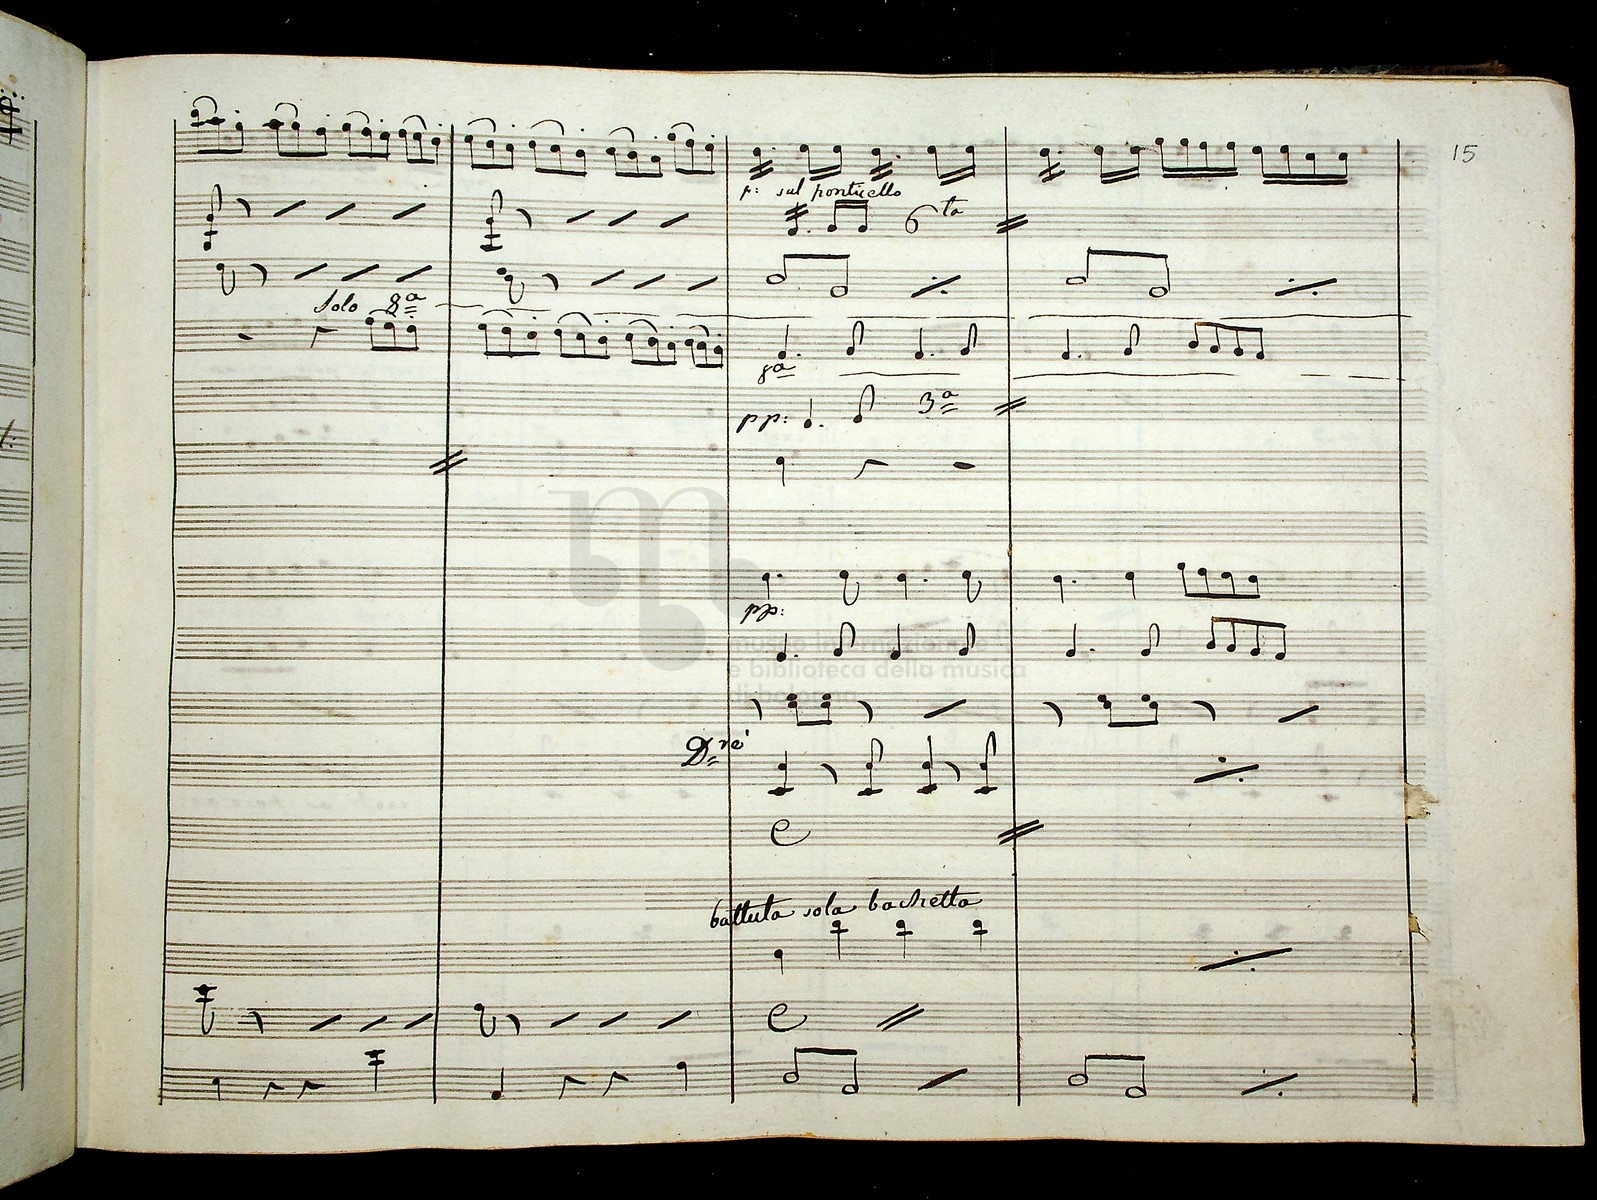 15
p: sul ponticello
6ta
Solo 8a
8a
pp: 3a
pp:
museo internazionale
e biblioteca della musica
di bologna
battuta sola bachetta